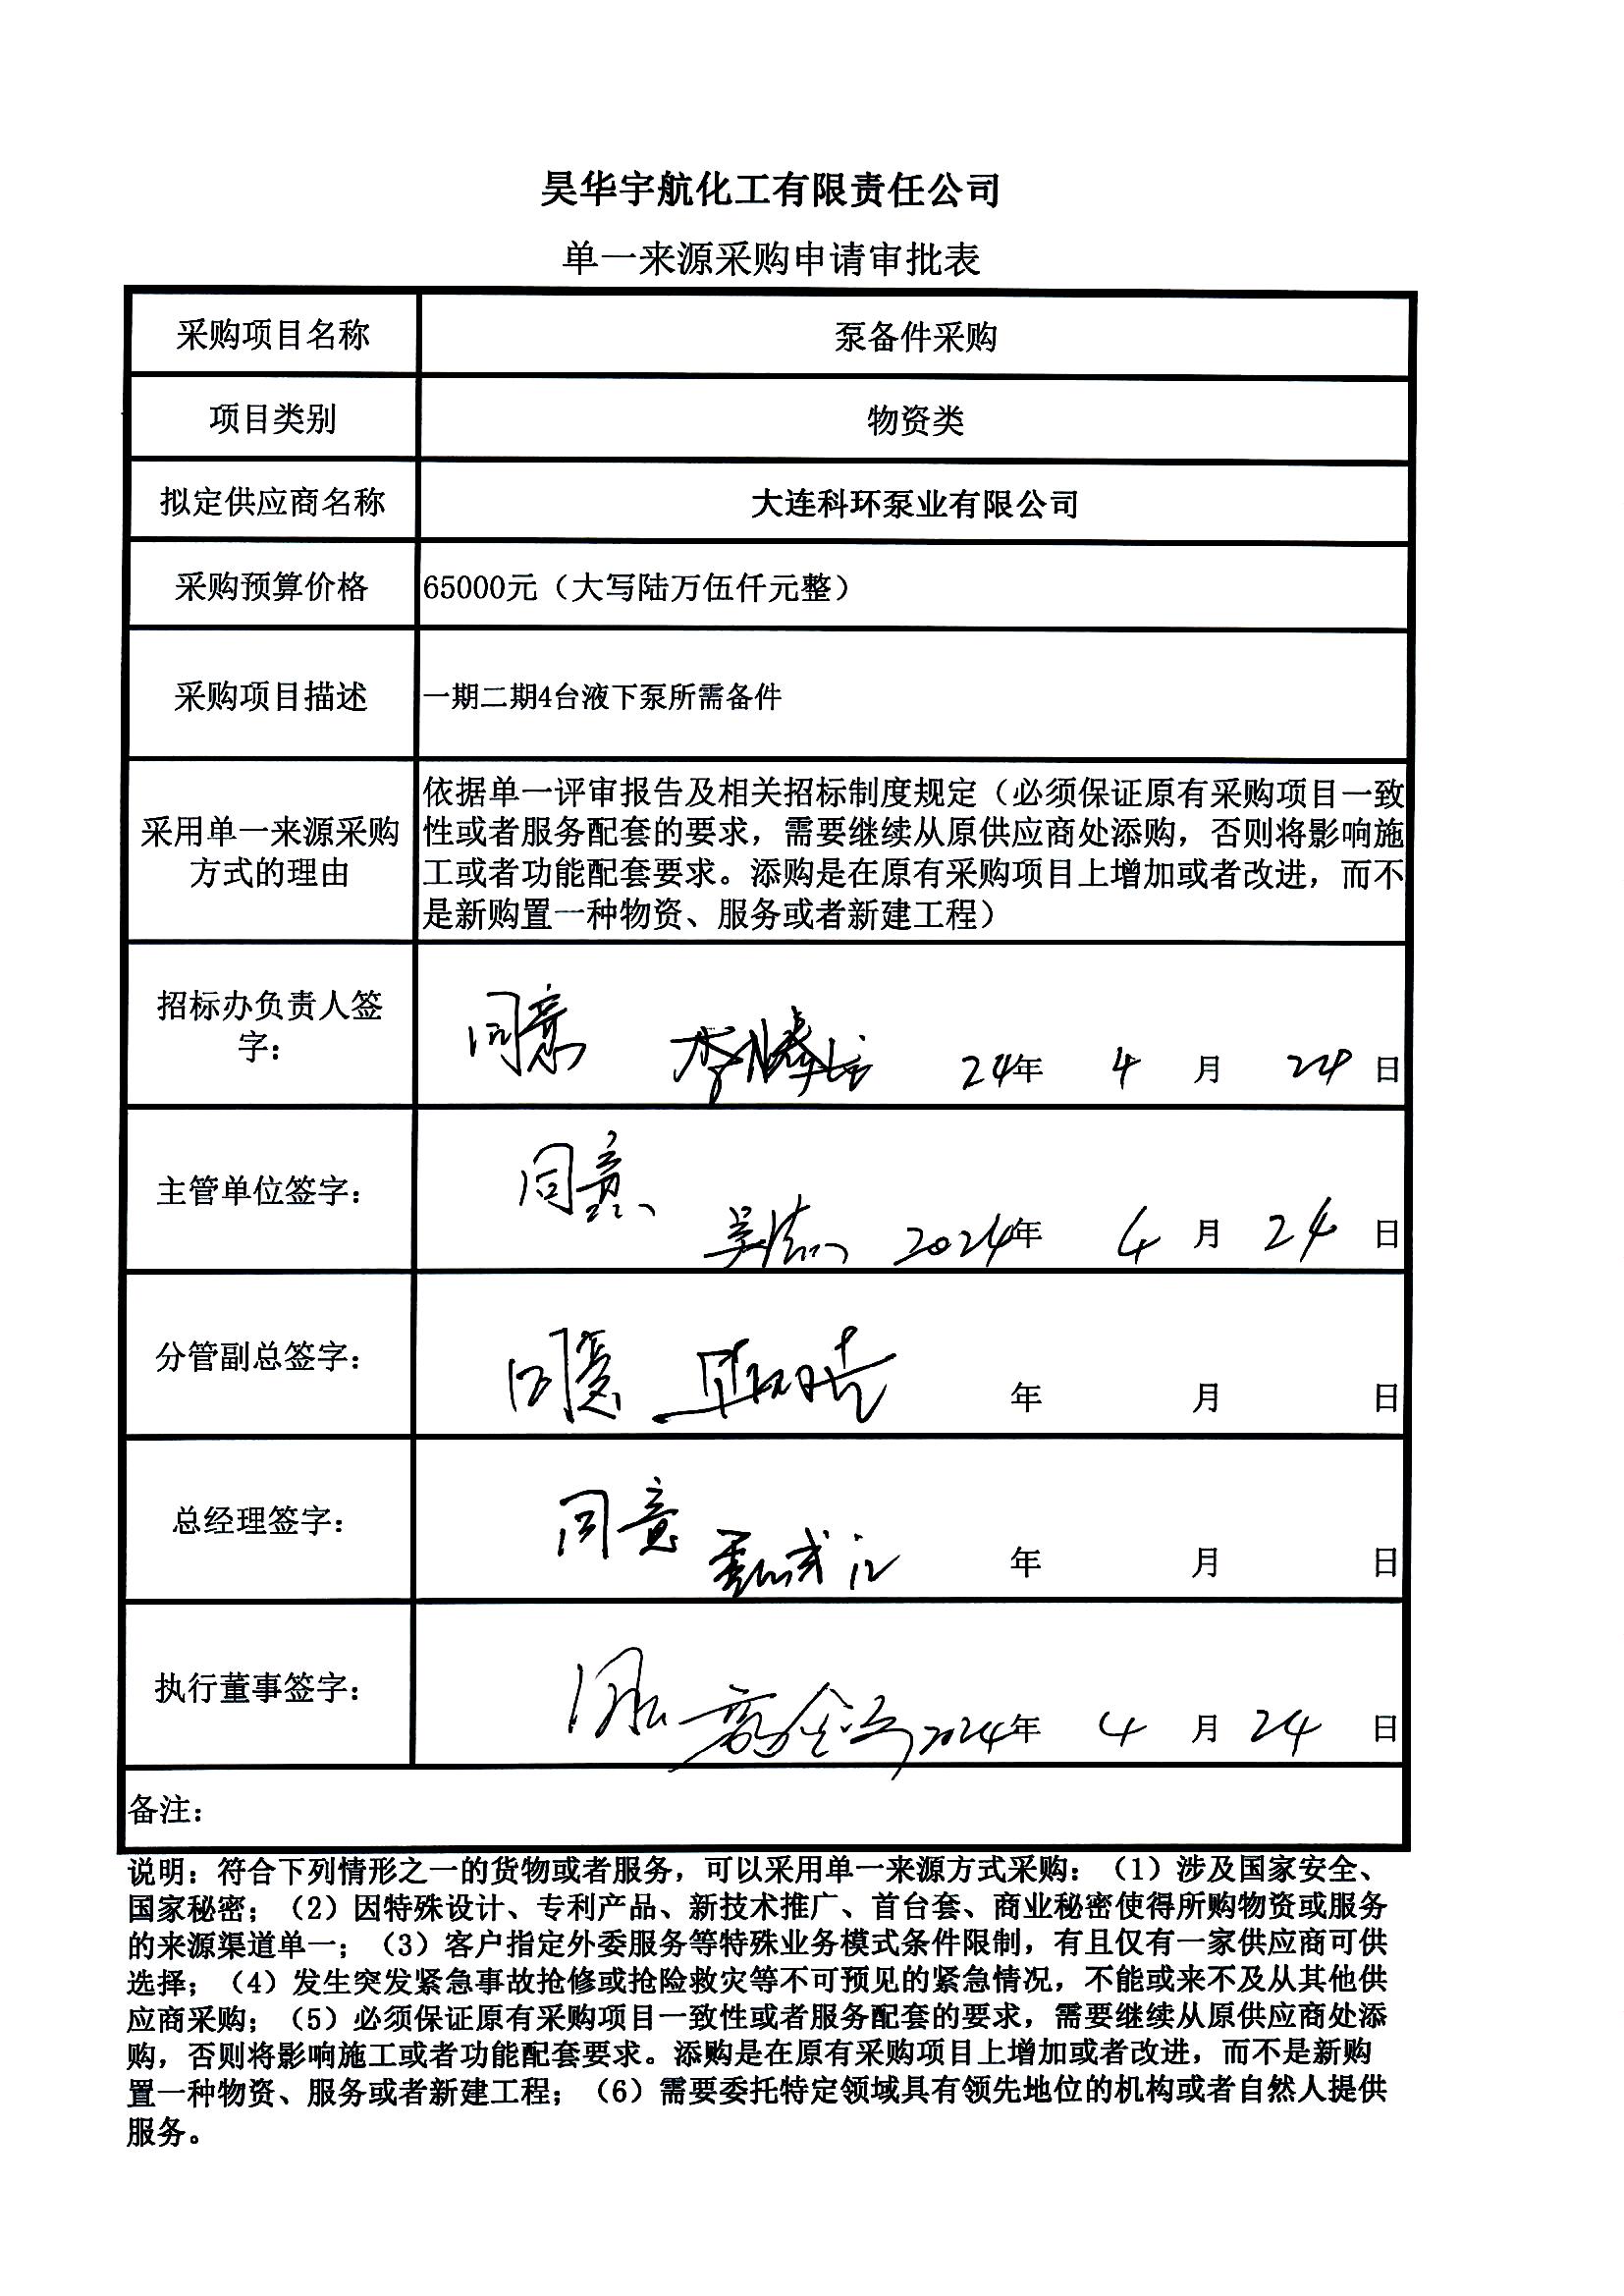 昊华宇航化工有限责任公司
单一来源采购申请审批表
采购项目名称 泵备件采购
项目类别 物资类
拟定供应商名称 大连科环泵业有限公司
采购预算价格 65000元（大写陆万伍仟元整）
采购项目描述 一期二期4台液下泵所需备件
采用单一来源采购
方式的理由
依据单一评审报告及相关招标制度规定（必须保证原有采购项目一致
性或者服务配套的要求，需要继续从原供应商处添购，否则将影响施
工或者功能配套要求。添购是在原有采购项目上增加或者改进，而不
是新购置一种物资、服务或者新建工程）
招标办负责人签
字：
同意 24年 4 月 24 日
主管单位签字：
同意
2024年 4 月 24 日
分管副总签字：
同意 年 月 日
总经理签字：
同意
年 月 日
执行董事签字：
2024年 4 月 24 日
备注：
说明：符合下列情形之一的货物或者服务，可以采用单一来源方式采购：（1）涉及国家安全、
国家秘密；（2）因特殊设计、专利产品、新技术推广、首台套、商业秘密使得所购物资或服务
的来源渠道单一；（3）客户指定外委服务等特殊业务模式条件限制，有且仅有一家供应商可供
选择；（4）发生突发紧急事故抢修或抢险救灾等不可预见的紧急情况，不能或来不及从其他供
应商采购；（5）必须保证原有采购项目一致性或者服务配套的要求，需要继续从原供应商处添
购，否则将影响施工或者功能配套要求。添购是在原有采购项目上增加或者改进，而不是新购
置一种物资、服务或者新建工程；（6）需要委托特定领域具有领先地位的机构或者自然人提供
服务。